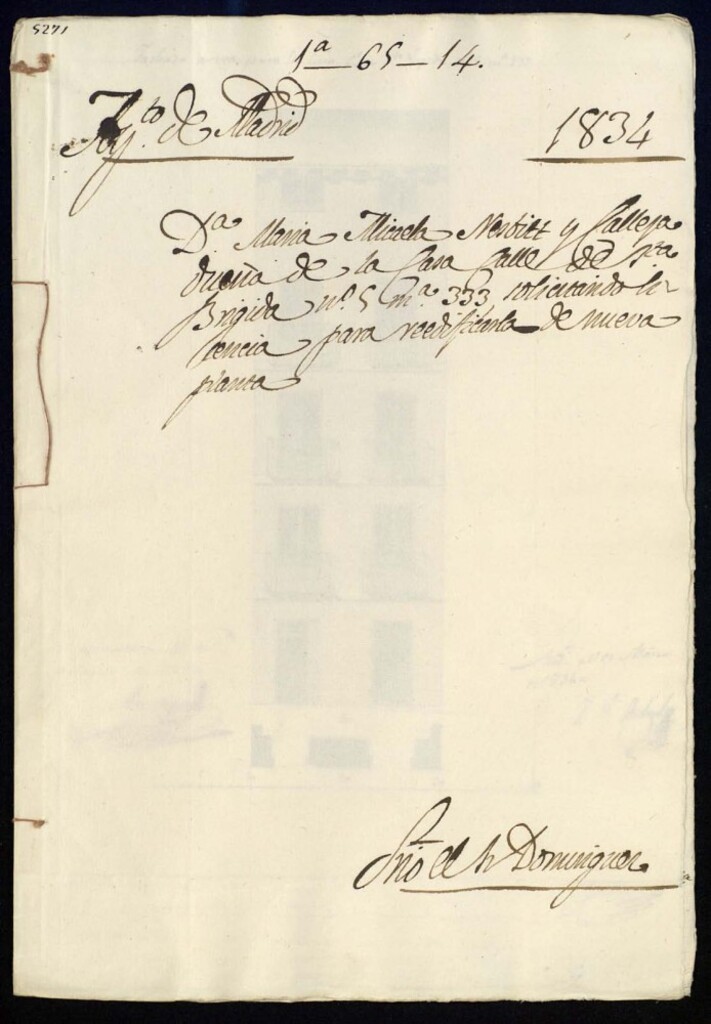 5271
1ª—65—14.
Ayto. de Madrid
1834
Dª. Maria Micaela Nesbitt y Calleja
dueña de la Casa Calle de Sta
Brigida nº. 5 mª. 333, solicitando li-
cencia para reedificarla de nueva
planta
Srio el Sr Dominguez